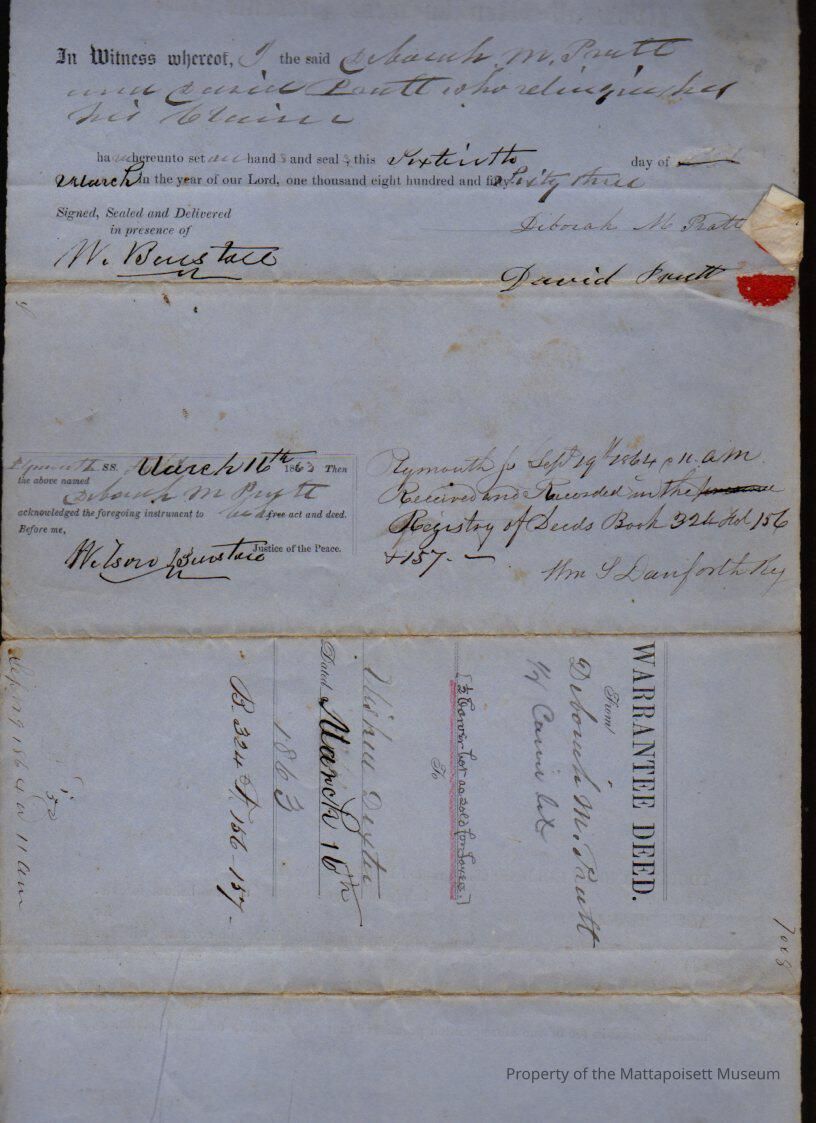 In Witness whereof, I the said Deborah M. Pratt
and David Pratt who relinquishes
his Claim
ha hereunto set our hands and seals, this Sixteenth day of
March in the year of our Lord, one thousand eight hundred and fifty Sixty three
Signed, Sealed and Delivered
in presence of
Deborah M Pratt
W. Barstow
David Pratt
Plymouth SS. March 16th 1863 Then
the above named
Deborah M Pratt
acknowledged the foregoing instrument to be her free act and deed.
Before me,
Wilson Barstow Justice of the Peace.
Plymouth ss Sept 19th 1864 11. a M.
Received and Recorded in the
Registry of Deeds Book 324 Fol 156
& 157. —
Wm S Danforth Reg
WARRANTEE DEED.
From
Deborah M. Pratt
To
Dexter
Dated March 16th
1863
B. 324 P. 156-157.
Sep 19 1864 11 am